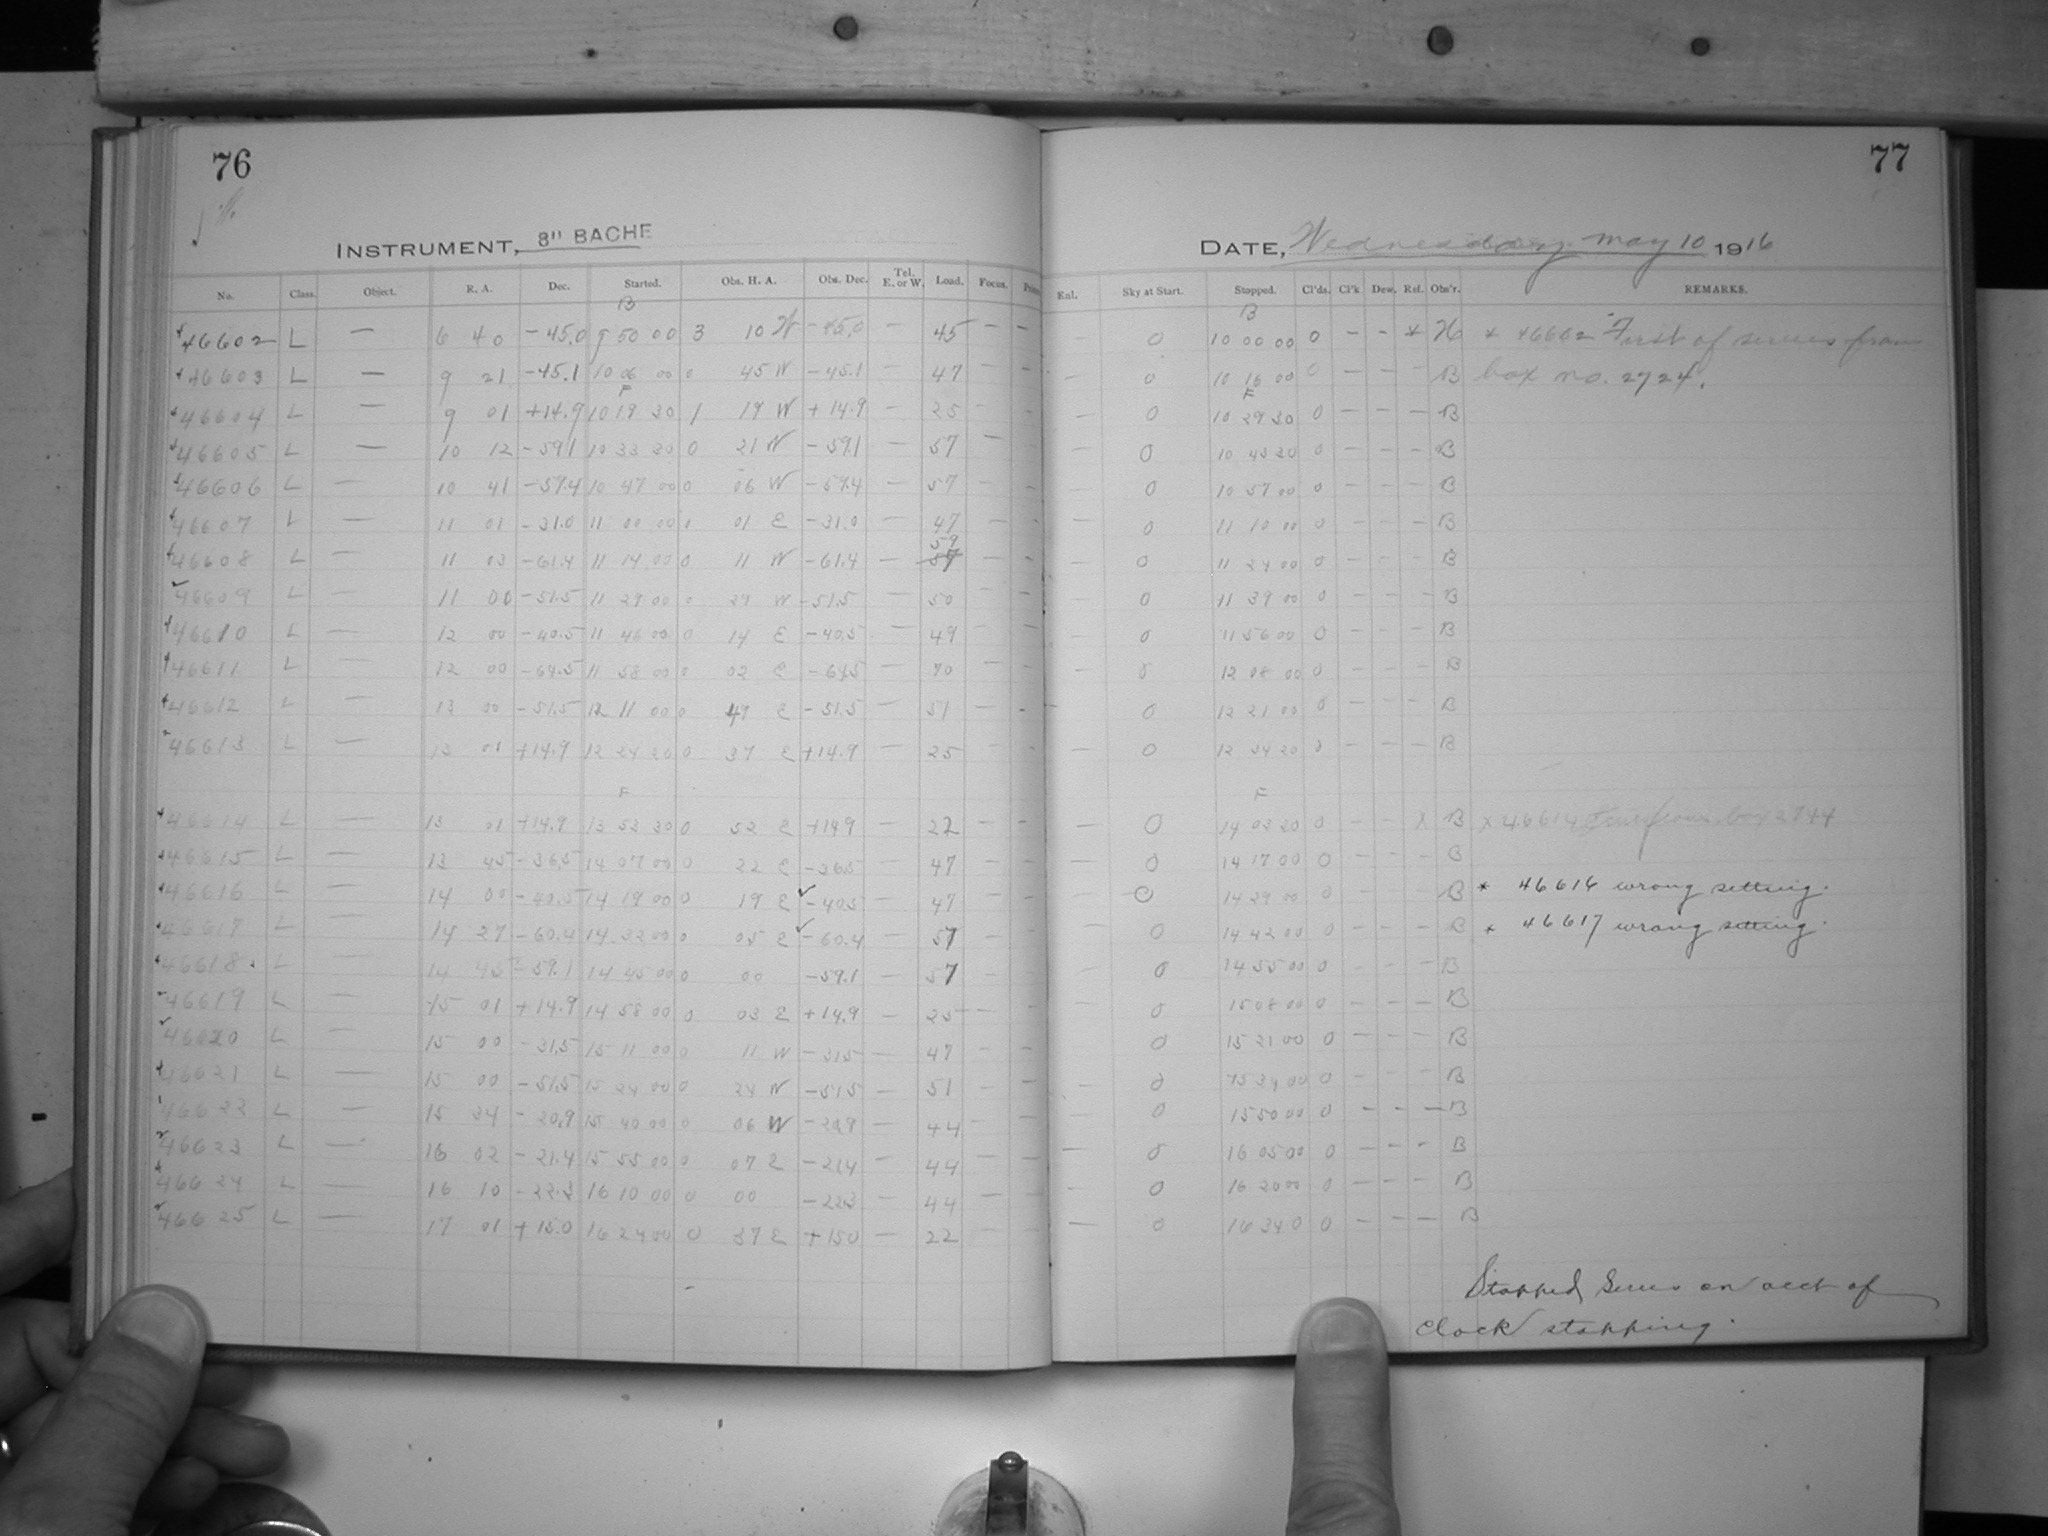 76
77
INSTRUMENT, 8" BACHE
DATE, Wednesday May 10 1916
No. Class. Object. R. A. Dec. Started. Obs. H. A. Obs. Dec. Tel. E. or W. Load. Focus. Enl. Sky at Start. Stopped. Cl'ds. Cl'k Dew. Ref. Obs'r. REMARKS.
B B
46602 L — 6 40 -45.0 9 50 00 3 10 W -45.0 — 45 — — — 0 10 00 00 0 — — * * 46602 First of series from
46603 L — 9 21 -45.1 10 06 00 0 45 W -45.1 — 47 — — — 0 10 16 00 0 — — — B box no. 2724.
F F
46604 L — 9 01 +14.9 10 19 30 1 19 W +14.9 — 25 — — — 0 10 29 30 0 — — — B
46605 L — 10 12 -59.1 10 33 30 0 21 W -59.1 — 57 — — 0 10 43 30 0 — — — B
46606 L — 10 41 -59.4 10 47 00 0 06 W -59.4 — 57 — — — 0 10 57 00 0 — — — B
46607 L — 11 01 -31.0 11 00 00 0 01 E -31.0 — 47 — — — 0 11 10 00 0 — — — B
59
46608 L — 11 03 -61.4 11 14 00 0 11 W -61.4 — 57 — — — 0 11 24 00 0 — — — B
46609 L — 11 00 -51.5 11 29 00 0 29 W -51.5 — 50 — — — 0 11 39 00 0 — — — B
46610 L — 12 00 -40.5 11 46 00 0 14 E -40.5 — 49 — — — 0 11 56 00 0 — — — B
46611 L — 12 00 -69.5 11 58 00 0 02 E — 70 — — — 0 12 08 00 0 — — — B
46612 L — 13 00 -51.5 12 11 00 0 49 E -51.5 — 51 — — — 0 12 21 00 0 — — — B
46613 L — 13 01 +14.9 12 24 20 0 37 E +14.9 — 25 — — — 0 12 34 20 0 — — — B
F F
46614 L — 13 01 +14.9 13 53 30 0 52 E +14.9 — 22 — — — 0 14 03 30 0 — — X B X 46614 from box 2744
46615 L — 13 45 -36.5 14 07 00 0 22 E -36.5 — 47 — — — 0 14 17 00 0 — — — B
46616 L — 14 00 -40.5 14 19 00 0 19 E -40.5 — 47 — — — 0 14 29 00 0 B * 46616 wrong setting.
46617 L — 14 27 -60.4 14 32 00 0 05 E -60.4 — 57 — — — 0 14 42 00 0 — — — B * 46617 wrong setting.
46618 L — 14 45 -59.1 14 45 00 0 00 -59.1 — 57 — — — 0 14 55 00 0 — — — B
46619 L — 15 01 +14.9 14 58 00 0 03 E +14.9 — 25 — — — 0 15 08 00 0 — — — B
46620 L — 15 00 -31.5 15 11 00 0 11 W -31.5 — 47 — — — 0 15 21 00 0 — — — B
46621 L — 15 00 -51.5 15 24 00 0 24 W -51.5 — 51 — — — 0 15 34 00 0 — — — B
46622 L — 15 34 -20.9 15 40 00 0 06 W -20.9 — 44 — — 0 15 50 00 0 — — — B
46623 L — 16 02 -21.4 15 55 00 0 07 E -21.4 — 44 — — — 0 16 05 00 0 — — — B
46624 L — 16 10 -22.3 16 10 00 0 00 -22.3 — 44 — — — 0 16 20 00 0 — — — B
46625 L — 17 01 +15.0 16 24 00 0 37 E +15.0 — 22 — — — 0 16 34 0 0 — — — B
Stopped Series on acct of
clock stopping.